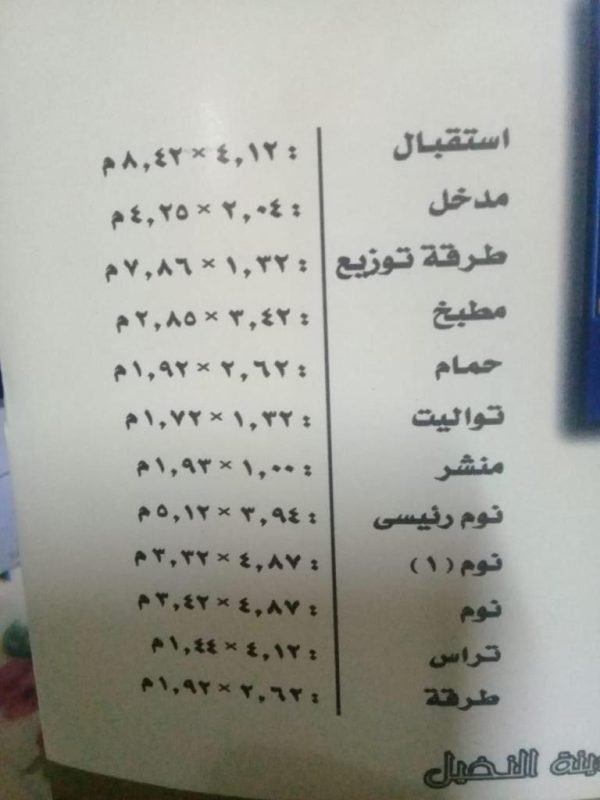 استقبال : ٤,١٢ × ٨,٤٢م
مدخل : ٢,٠٤ × ٤,٢٥م
طرقة توزيع : ١,٣٢ × ٧,٨٦م
مطبخ : ٣,٤٢ × ٢,٨٥م
حمام : ٢,٦٢ × ١,٩٢م
تواليت : ١,٣٢ × ١,٧٢م
منشر : ١,٠٠ × ١,٩٣م
نوم رئيسى : ٣,٩٤ × ٥,١٢م
نوم (١) : ٤,٨٧ × ٣,٣٢م
نوم : ٤,٨٧ × ٣,٤٢م
تراس : ٤,١٢ × ١,٤٤م
طرقة : ٢,٦٢ × ١,٩٢م
النخيل